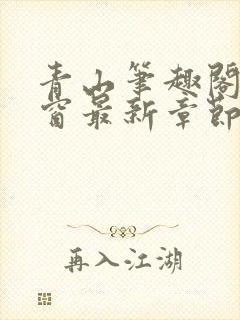 青山笔趣阁
窗最新章節
再入江湖